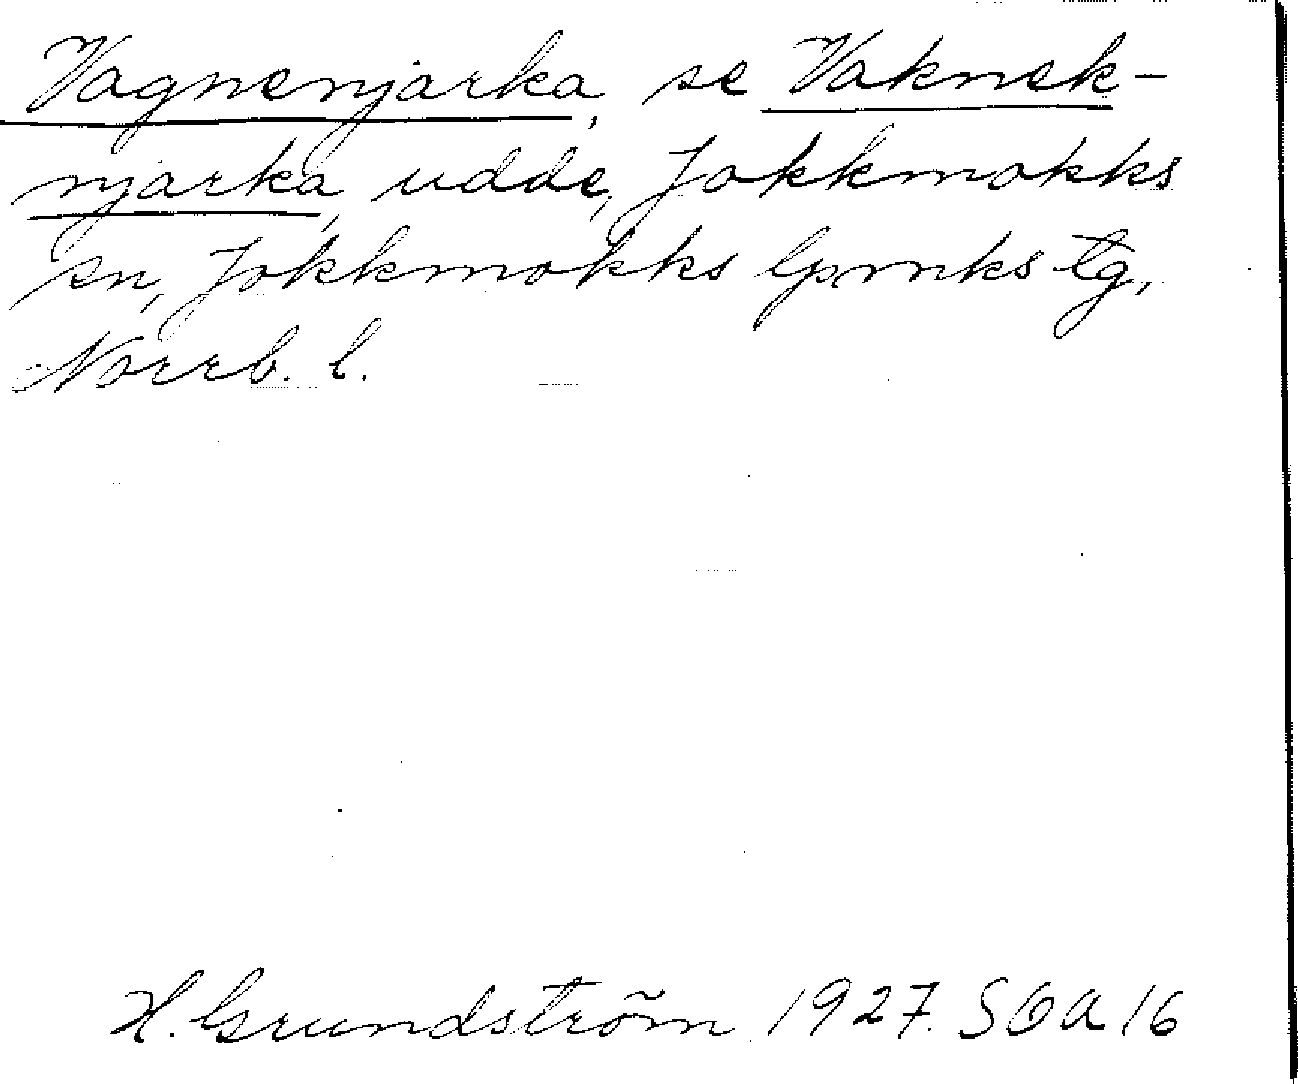 Vagnenjarka, se Vaknek-
njarka, udde, Jokkmokks
sn, Jokkmokks lpmks tg,
Norrb. l.
H. Grundström 1927. SOA 16